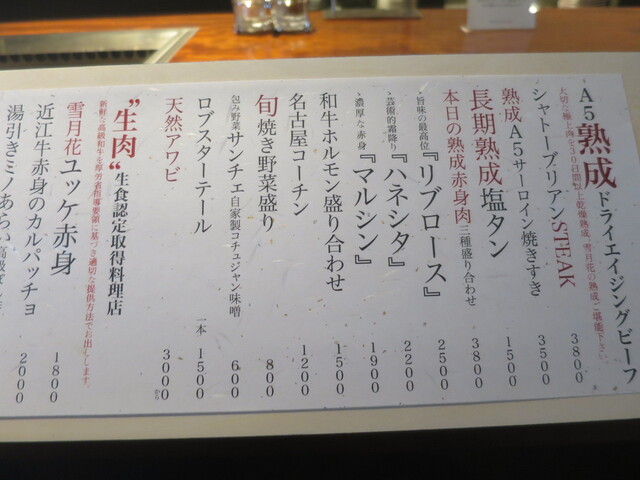 A5熟成ドライエイジングビーフ
大切な極上肉を30日間以上乾燥熟成、雪月花の熟成ご堪能下さい。
シャトーブリアンSTEAK 3800
熟成A5サーロイン焼きすき 3500
長期熟成塩タン 1500
本日の熟成赤身肉 三種盛り合わせ 3800
旨味の最高位『リブロース』 2500
芸術的霜降り『ハネシタ』 2200
濃厚な赤身『マルシン』 1900
和牛ホルモン盛り合わせ 1500
名古屋コーチン 1200
旬焼き野菜盛り 800
包み野菜 サンチェ 自家製コチュジャン味噌 600
ロブスターテール 一本 1500
天然アワビ 3000から
”生肉“生食認定取得料理店
新鮮な高級和牛を厚労省指導要領に基づき適切な提供方法でお出しします。
雪月花ユッケ赤身 1800
近江牛赤身のカルパッチョ 2000
湯引きミノあらい